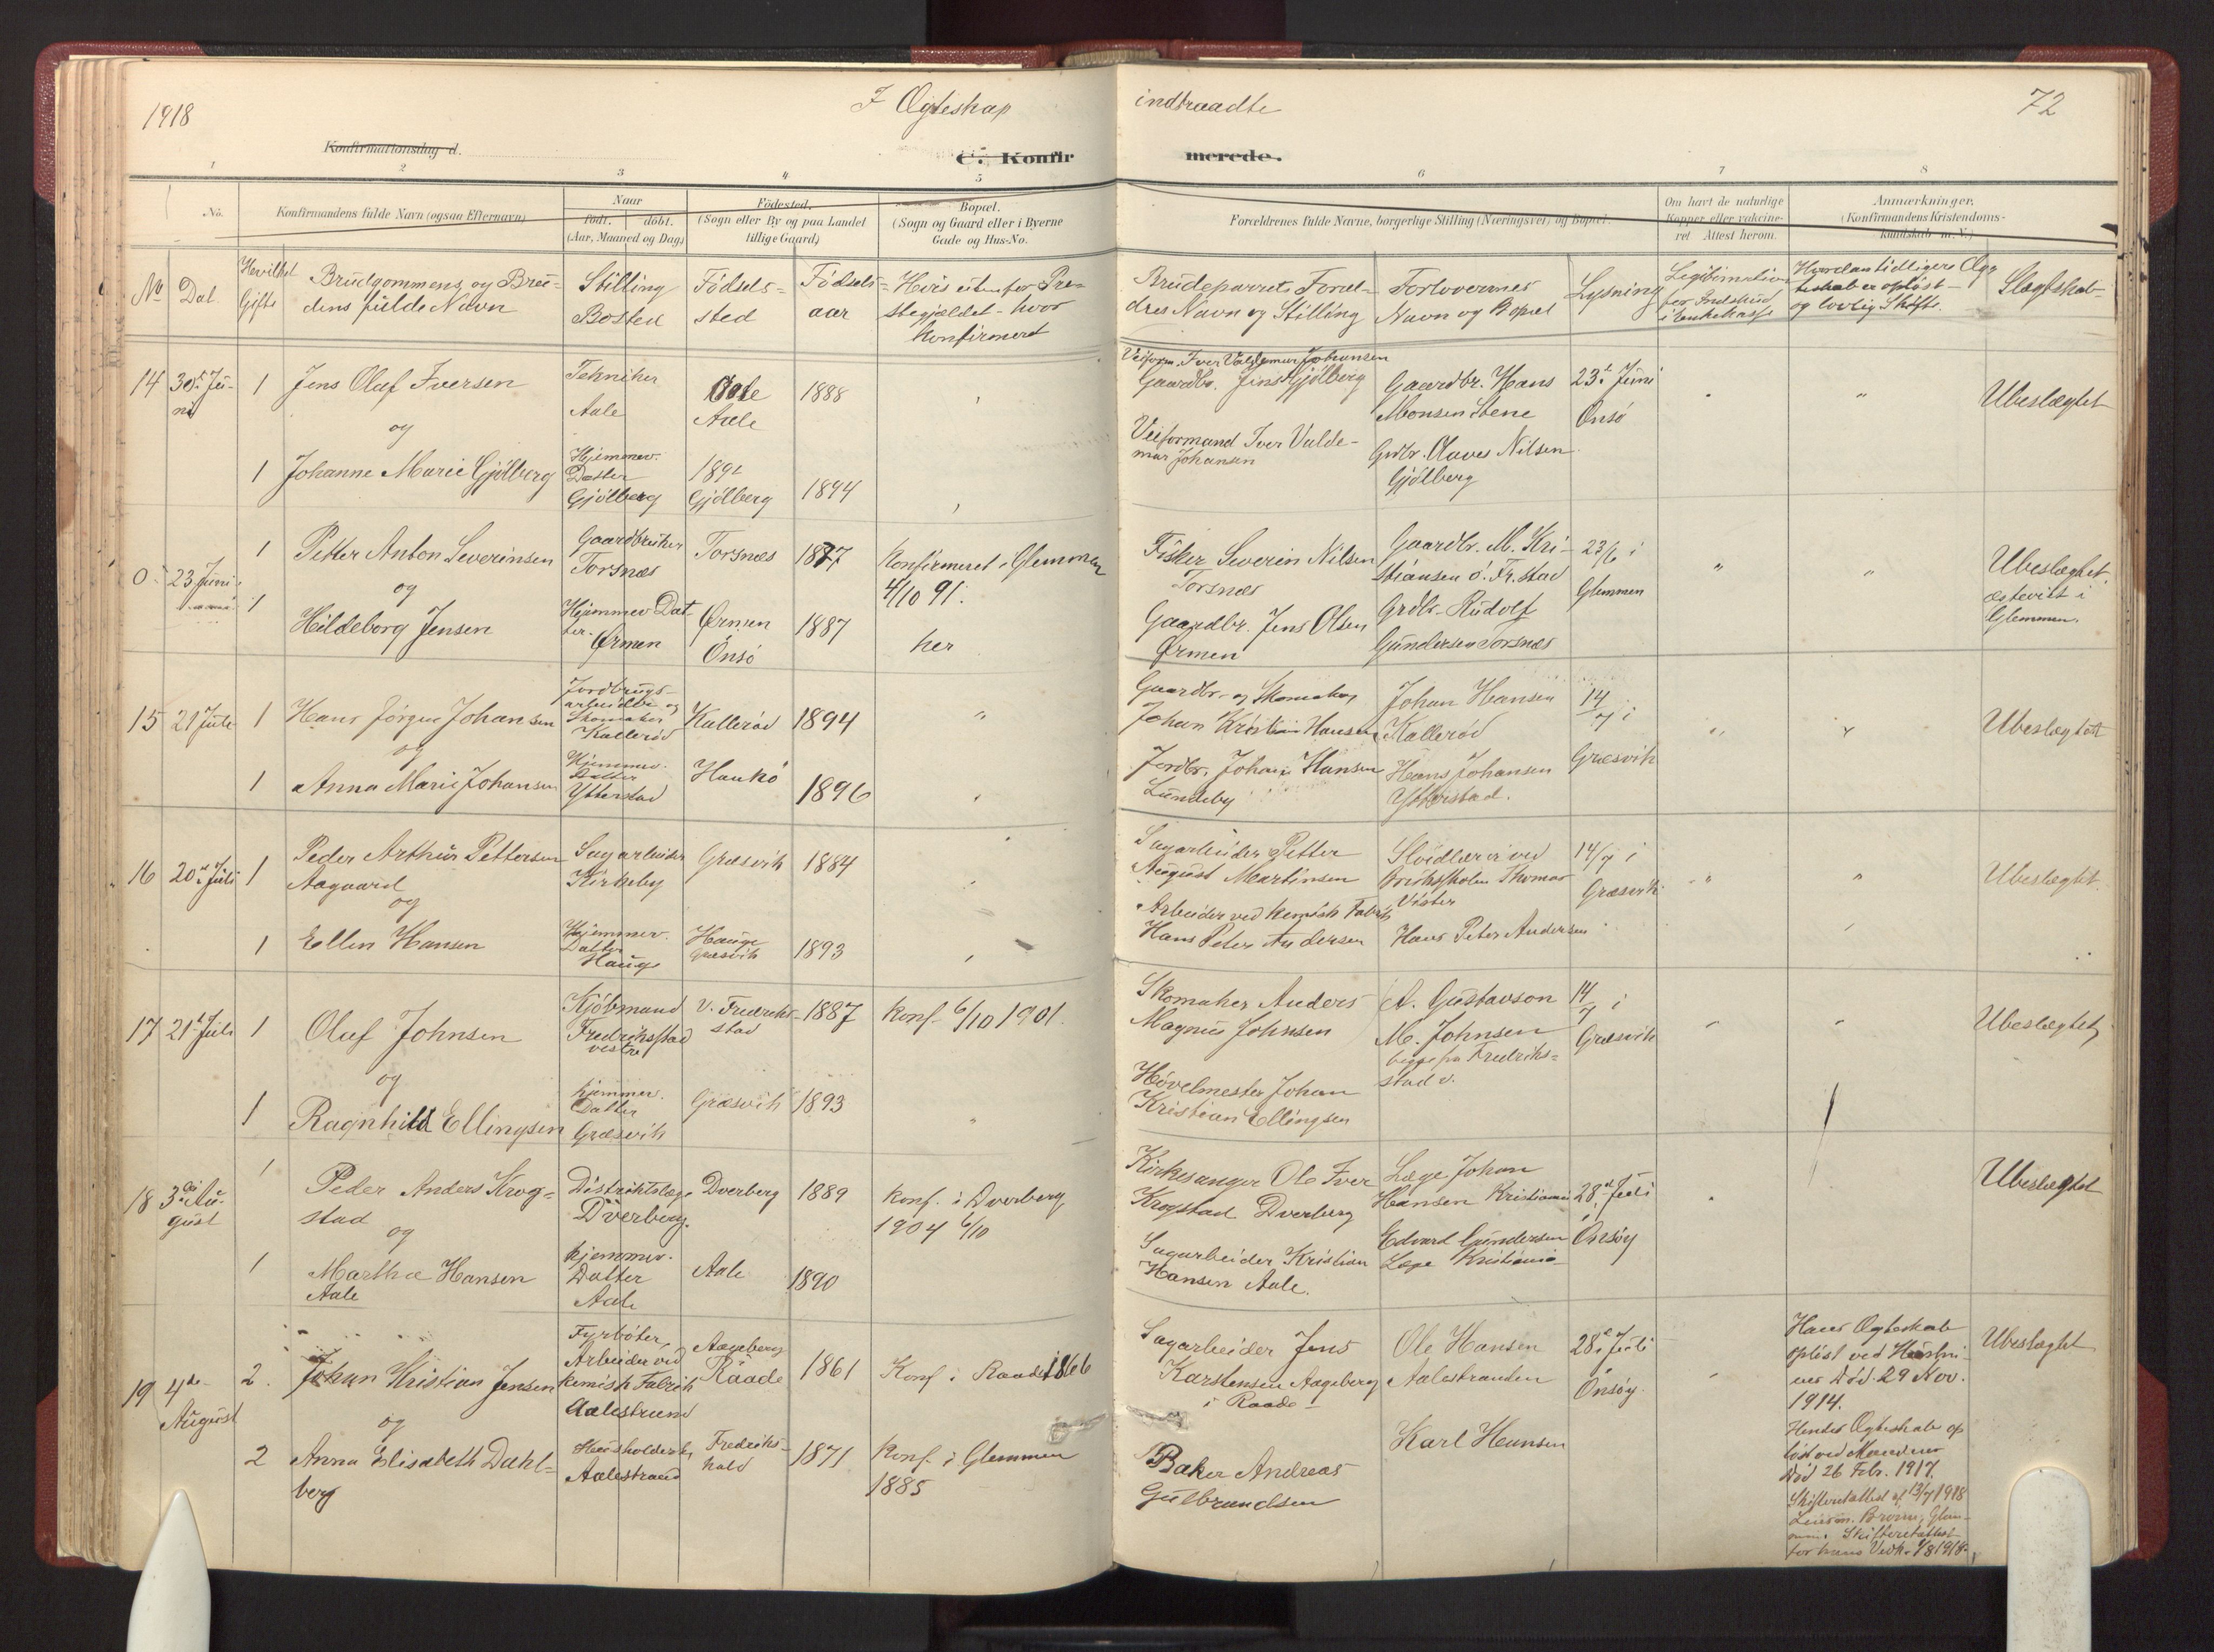 1918
I Ægteskap
indtraadte
72
Konfirmationsdag d.
C. Konfir
merede.
1 2 3 4 5 6 7 8
No.
Konfirmandens fulde Navn (ogsaa Efternavn)
Naar
født. døbt.
(Aar, Maaned og Dag)
Fødested.
(Sogn eller By og paa Landet
tillige Gaard)
Bopæl.
(Sogn og Gaard eller i Byerne
Gade og Hus-No.
Forældrenes fulde Navne, borgerlige Stilling (Næringsvei) og Bopæl.
Om havt de naturlige
Kopper eller vakcine-
ret. Attest herom.
Anmærkninger.
(Konfirmandens Kristendoms-
kundskab m. V.)
No
Dat
Hvervilket
Gifte
Brudgommens og Bru-
dens fulde Navn
Stilling
Bosted
Fødsels-
sted
Fødsels-
aar
Hvis utenfor Pre-
stegjeldet - hvor
konfirmert
Brudeparrets Foræl-
dres Navn og Stilling
Forlovernes
Navn og Bopæl
Lysning
Legitimation
for Indskud
i Enkekasse
Hvordan tidligere Æg-
teskab er opløst
og lovlig Skifte.
Slegtskab
14
30te Ju-
ni
1
Jens Olaf Iversen
og
Tekniker
Aale
Aale
1888
Veiform. Iver Valdemar Johansen
Gaardbr. Jens Gjølberg
Gaardbr. Hans
Monsen Stene
23de Juni
Onsø
Ubeslægtet
1
Johanne Marie Gjølberg
Hjemmev.
Datter
Gjølberg
189
Gjølberg
1894
Veiformand Iver Valde-
mar Johansen
Grdbr. Olaves Nilsen
Gjølberg
0
23 Juni
1
Petter Anton Severinsen
og
Gaardbruker
Torsnæs
Torsnæs
1877
Konfirmeret i Glemmen
4/10 91.
Fisker Severin Nilsen
Torsnæs
Gaardbr. M. Kri-
stiansen ö. Fr.stad
23/6 i
Glemmen
Ubeslægtet
ægteviet i
Glemmen.
1
Hildeborg Jensen
Hjemmev Dat-
ter.
Ørmen
Ørmen
Onsö
1887
her
Gaardbr. Jens Olsen
Ørmen
Grdbr. Rudolf
Gundersen Torsnæs
15
21 Juli
1
Hans Jørgen Johansen
og
Jordbrugs-
arbeider og
Skomaker
Kallerød
Kallerød
1894
Gaardbr. og Skomaker
Johan Kristian Hansen
Johan Hansen
Kallerød
14
7 i
Græsvik
Ubeslægtet
1
Anna Marie Johansen
Hjemmev.
Datter
Ytterstad
Hankø
1896
Jordbr. Johan Hansen
Lundeby
Hans Johansen
Ytterstad.
16
20de Juli
1
Peder Arthur Pettersen
Aagaard
og
Sagarbeider
Kirkeby
Græsvik
1884
Sagarbeider Petter
August Martinsen
Sløidlærer ved
Thomas
Vister
14/7 i
Græsvik
Ubeslægtet
1
Ellen Hansen
Hjemmev.
Datter
Hauge
Hauge
Græsvik
1893
Arbeider ved kemisk Fabrik
Hans Peter Andersen
Hans Peter Andersen
17
21de Juli
1
Oluf Johnsen
og
Kjøbmand
Fredrikstad
vestre
V. Fredrik-
stad
1887
Konf. 6/10 1901.
Skomaker Anders
Magnus Johnsen
A. Gustavson
M. Johnsen
begge fra Fredriks-
stad v.
14
7 i
Græsvik
Ubeslægtet
1
Ragnhild Ellingsen
hjemmev.
Datter
Græsvik
Græsvik
1893
Høvelmester Johan
Kristian Ellingsen
18
3die Au-
gust
1
Peder Anders Krog-
stad
og
Distriktslæge
Dverberg
Dverberg
1889
Konf. i Dverberg
1904 6/10
Kirkesanger Ole Iver
Krogstad Dverberg
Læge Johan
Hansen Kristiania
28de Juli
i
Onsøy
Ubeslægtet
1
Martha Hansen
Aale
hjemmev.
Datter
Aale
Aale
1890
Sagarbeider Kristian
Hansen Aale.
Edvard Gundersen
Læge Kristiania
19
4de
August
2.
Johan Kristian Jensen
og
Fyrbøter,
Arbeider ved
kemisk Fabrik
Aalestrand
Aageberg
Raade
1861
Konf. i Raade 1866
Sagarbeider Jens
Karstensen Aageberg
i Raade
Ole Hansen
Aalestranden
28de Juli
i
Onsøy
Hans Ægteskab
opløst ved Hustru-
ens Død 29 Nov.
1914.
Ubeslægtet
2
Anna Elisabeth Dahl-
berg
Husholderske
Aalestrand
Fredriks-
hald
1871
Konf. i Glemmen
1885
Baker Andreas
Gulbrandsen
Karl Hansen
Hendes Ægteskab op
løst ved Mandens
Død 26 Febr. 1917.
Skifteretattest af 13/7 1918
Lensm. Glem-
men. Skifteretattest
for hans Vedk. 1/8 1918.